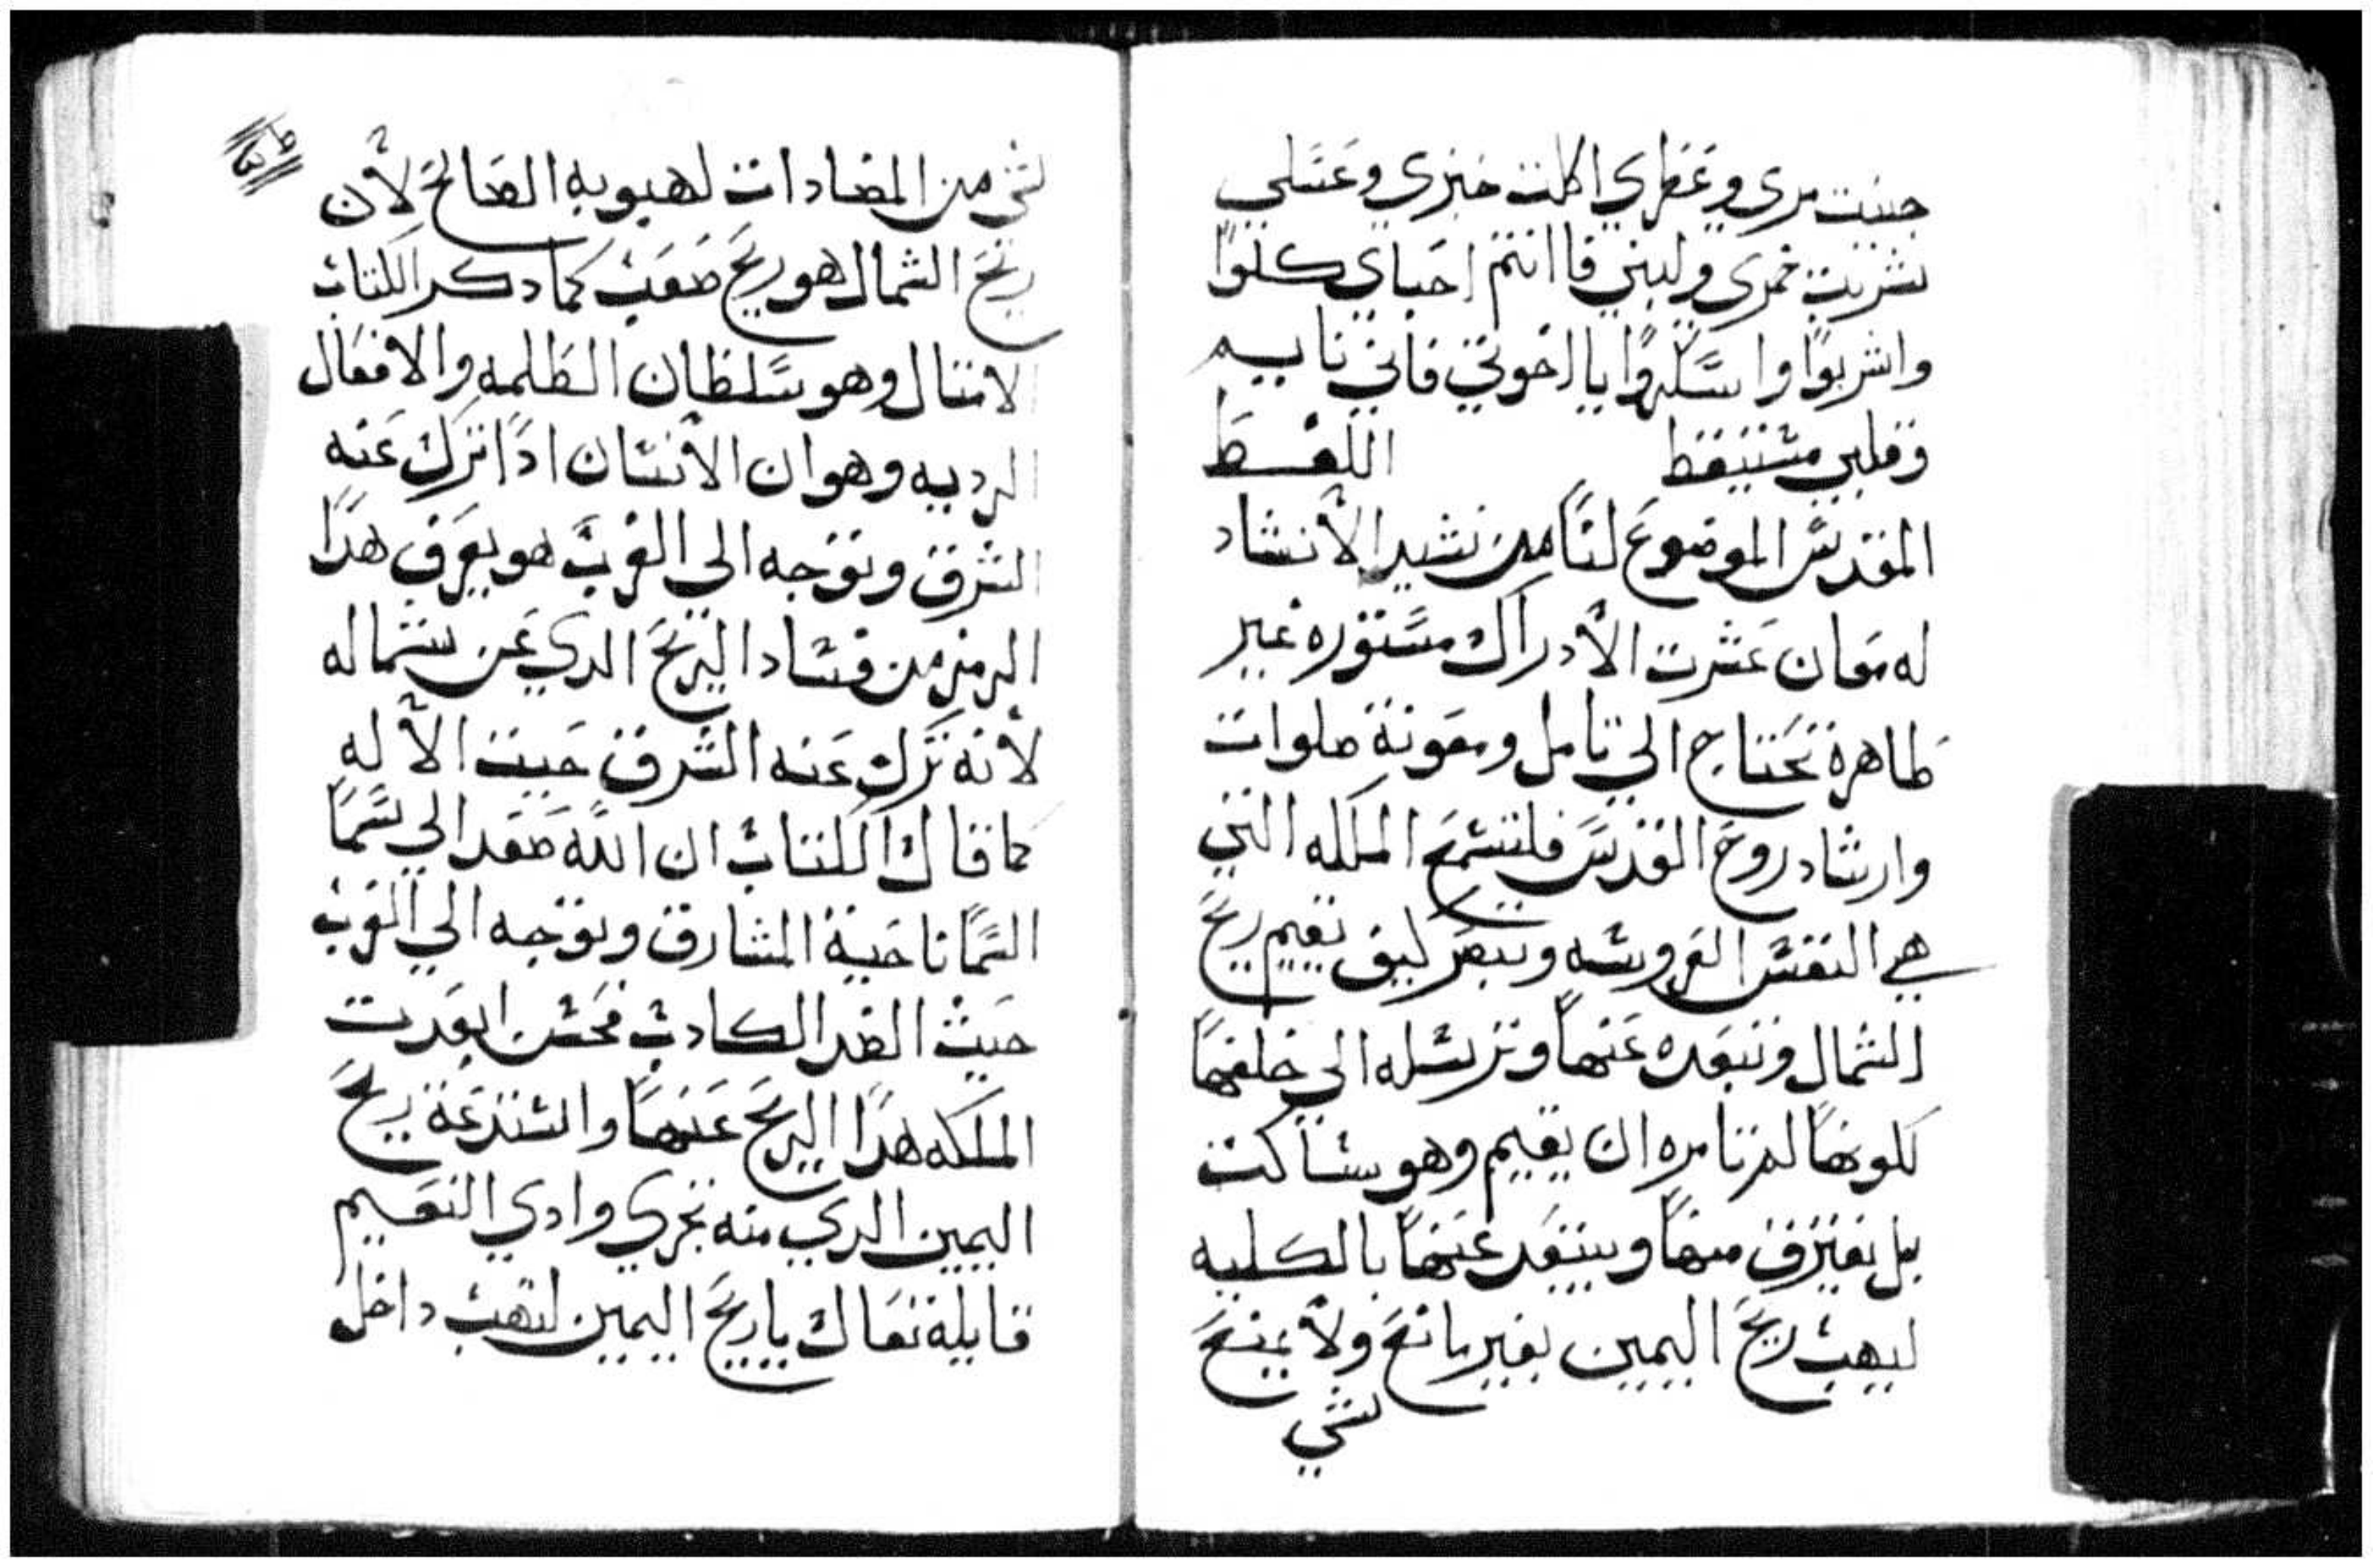 جنيت مري وعطري اكلت خبزي وعسلي
شربت خمري ولبني فا انتم احباي كلوا
واشربوا واسكروا يا اخوتي فاني نايم
وقلبي مستيقظ اللفظ
المقدس الموضوع لنا من نشيد الأنشاد
له معان عسرت الأدراك مستوره غير
ظاهرة تحتاج الي تامل ومعونة صلوات
وارشاد روح القدس فلنسمع الملكه التي
هي النفس العروسه وننظر كيف تقيم ريح
الشمال وتبعده عنها وترسله الي خلفها
لكونها لم تامره ان يقيم وهو ساكت
بل يفترق منها ويبتعد عنها بالكليه
ليهب ريح اليمين بغير مانع ولأ يمنع
شي
شي من المضادات لهبوبه الصالح لأن
ريح الشمال هو ريح صعب كما دكر الكتاب
الامتال وهو سلطان الظلمه والافعال
الرديه وهو ان الأنسان ادا ترك عنه
الشرق وتوجه الى الغرب هو يعرف هدا
الرمز من فساد الريح الدي عن شماله
لأنه ترك عنه الشرق حيت الأله
كما قال الكتاب ان الله صعد الي سما
السما ناحية المشارق وتوجه الي الغرب
حيث الضد الكادب فحسن ابعدت
الملكه هدا الريح عنها واستدعة ريح
اليمين الدي منه تجري وادي النعيم
قايلة تعال يا ريح اليمين لتهب داخل